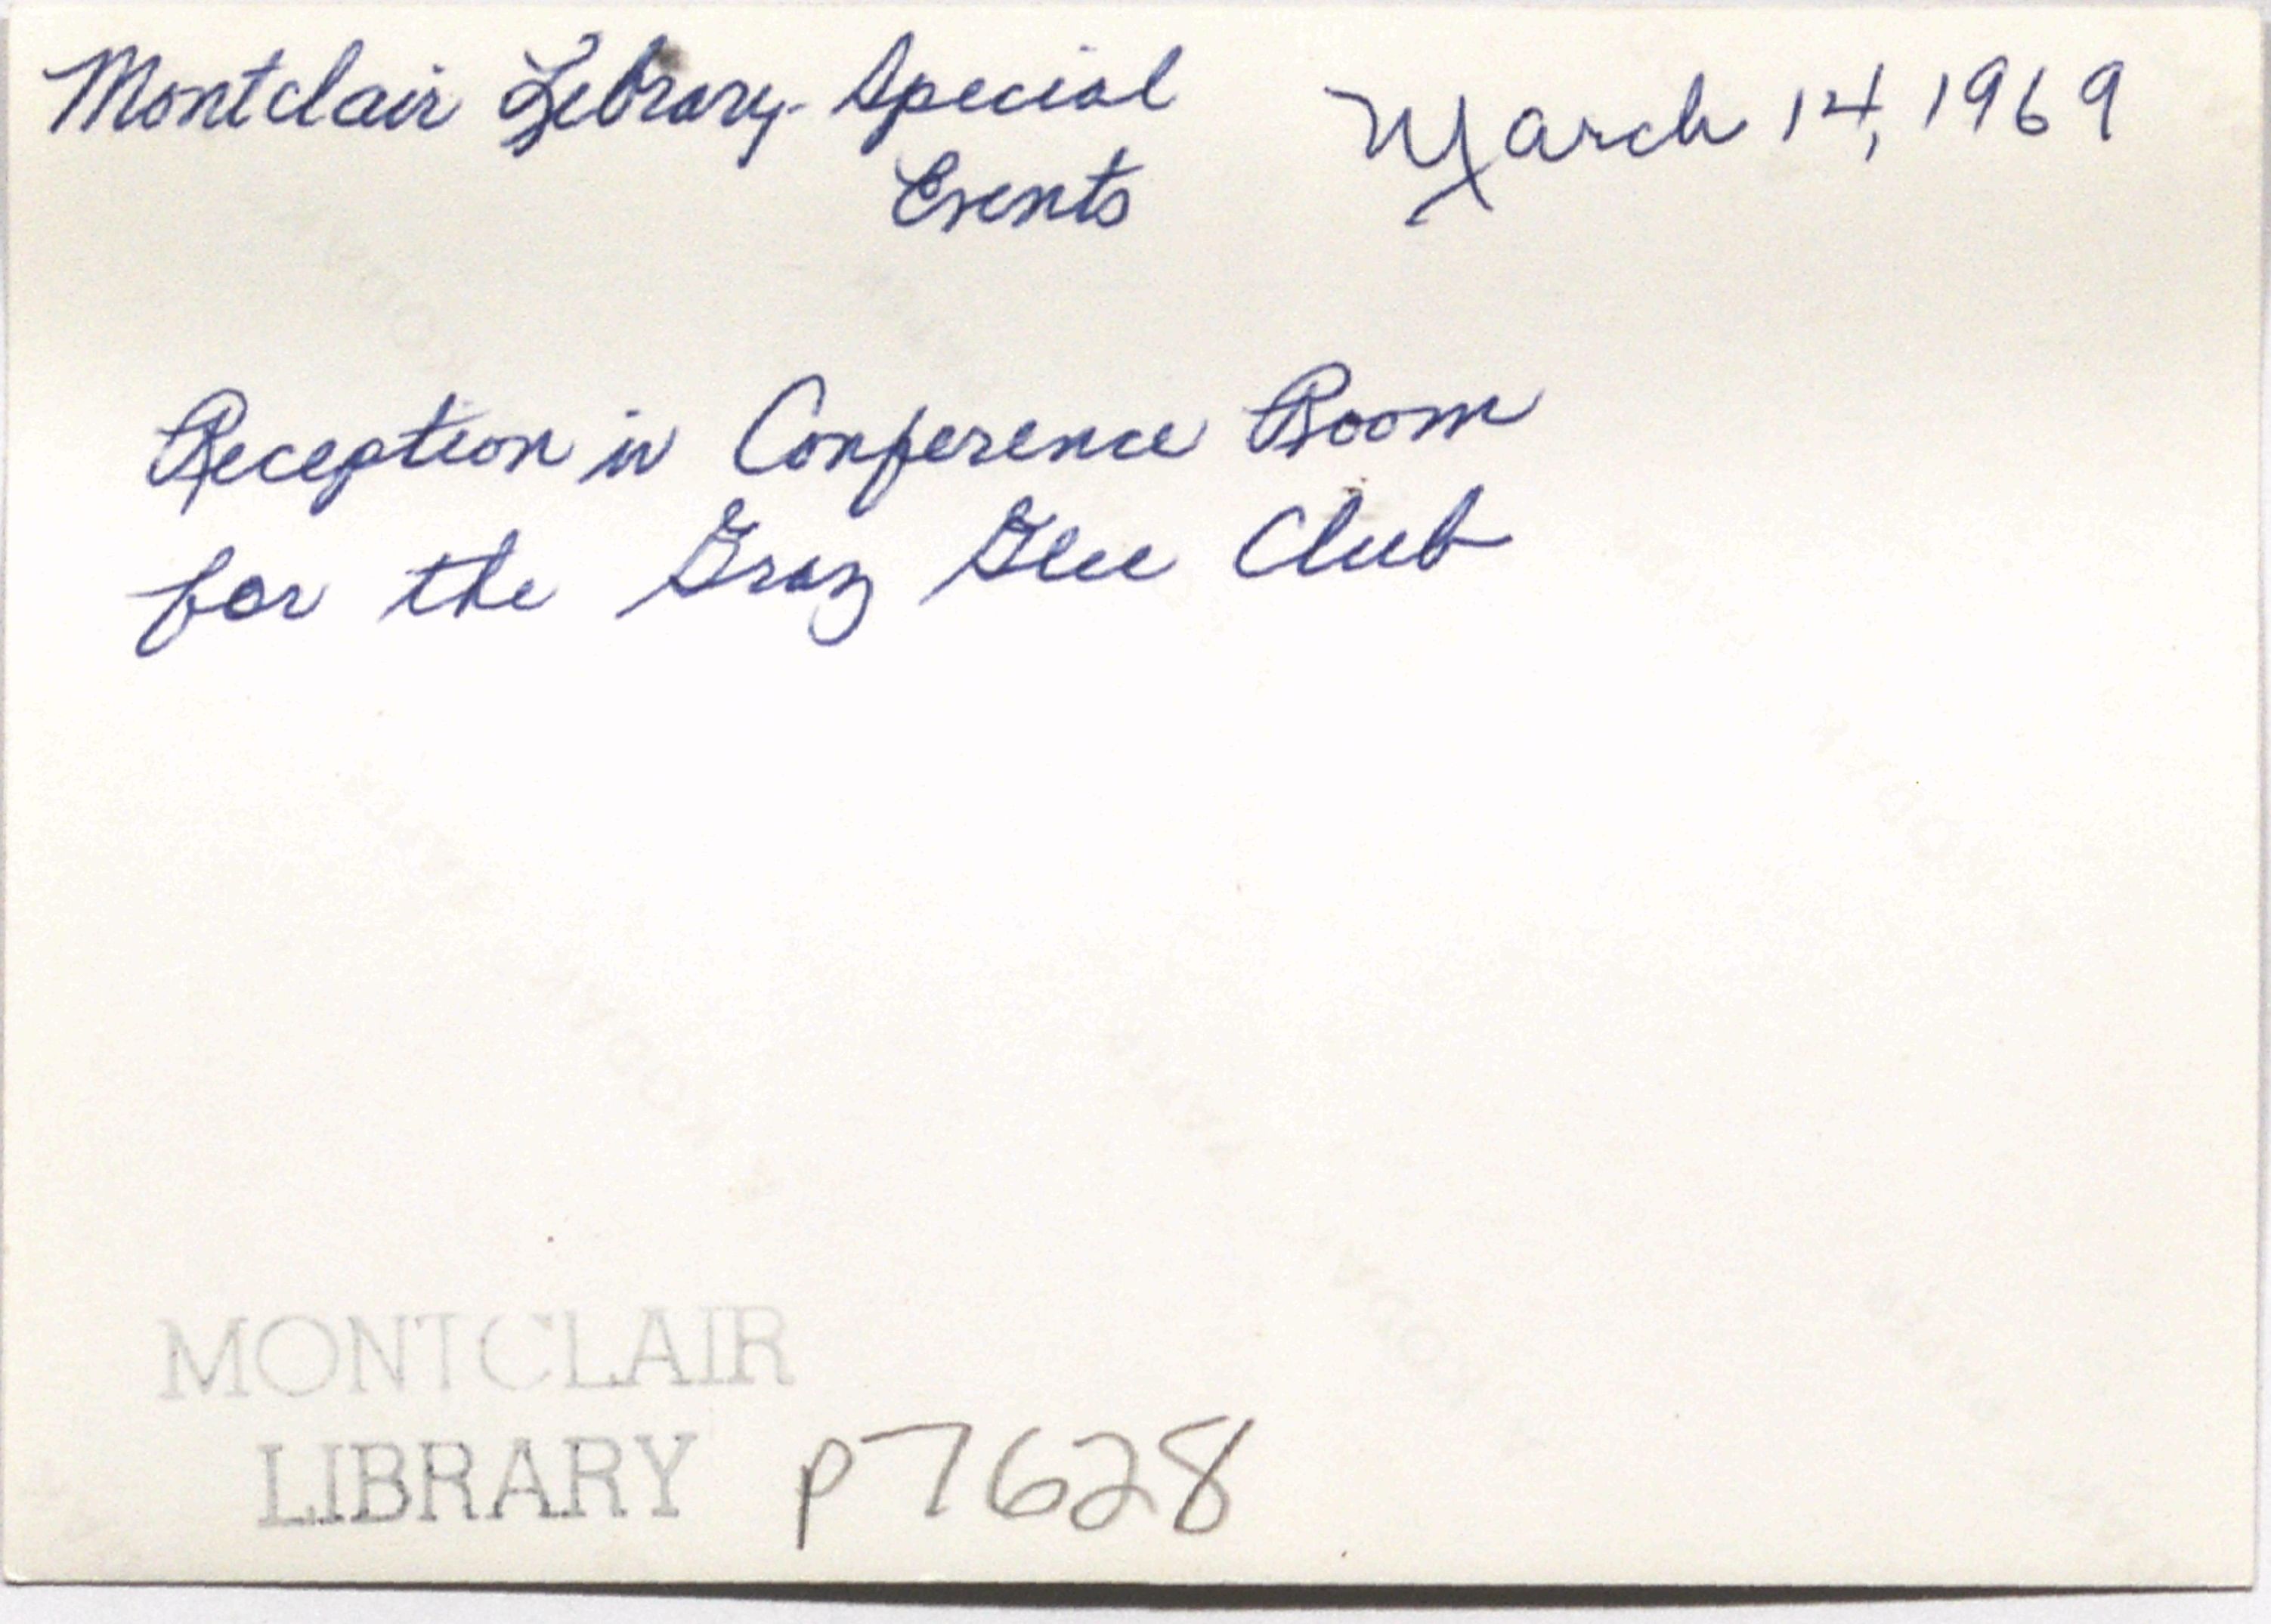 Montclair Library - Special Events
March 14, 1969
Reception in Conference Room
for the Graz Glee Club
MONTCLAIR
LIBRARY
p7628